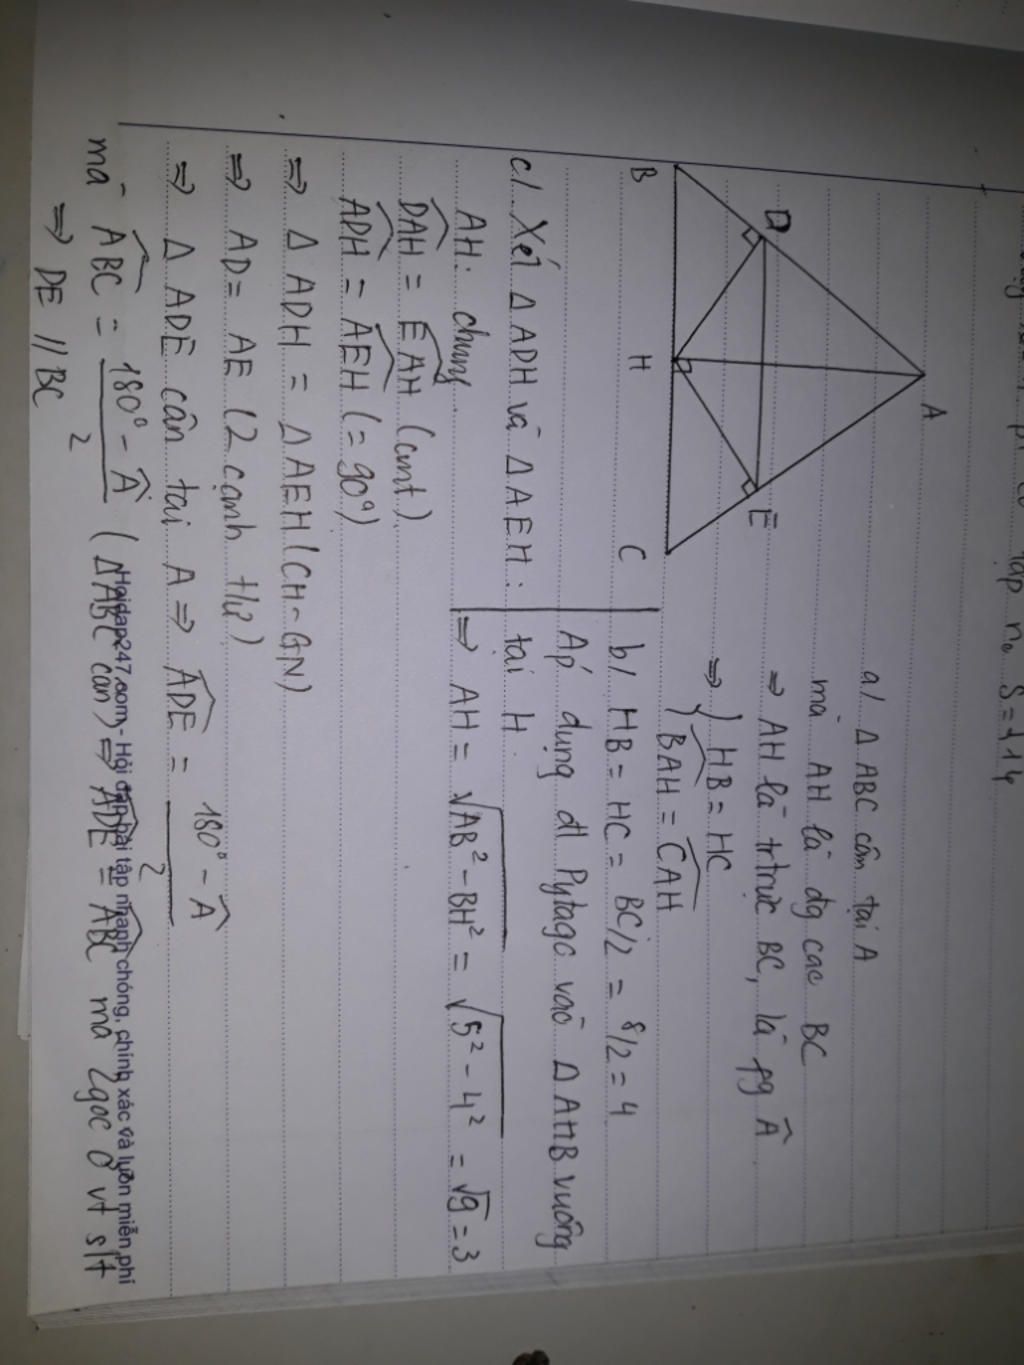 S = 114
A
D
E
B
H
C
a/ Δ ABC cân tại A
mà AH là đg cao BC
⇒ AH là trtrực BC, là pg Â
⇒ } HB = HC
} BAH = CAH
b/ HB = HC = BC/2 = 8/2 = 4
Áp dụng đl Pytago vào Δ AHB vuông
tại H.
⇒ AH = √AB² - BH² = √5² - 4² = √9 = 3
c/. Xét Δ ADH và Δ AEH :
AH: chung.
DAH = EAH (cmt)
ADH = AEH (= 90°)
⇒ Δ ADH = Δ AEH (CH-GN)
⇒ AD = AE (2 cạnh t/ư)
⇒ Δ ADE cân tại A ⇒ ADE = 180° - Â / 2
mà ABC = 180° - Â / 2 (Δ ABC cân) ⇒ ADE = ABC mà 2 góc ở vt slt
⇒ DE // BC
Hoidap247.com - Hỏi đáp bài tập nhanh chóng, chính xác và luôn miễn phí